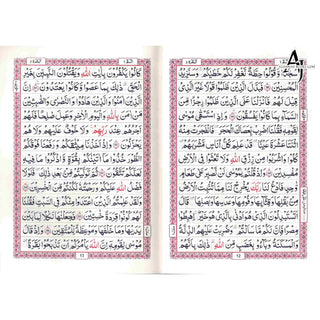 سُجَّدًا وَّقُوْلُوْا حِطَّةٌ نَّغْفِرْ لَكُمْ خَطٰيٰكُمْ ؕ وَسَنَزِيْدُ
الْمُحْسِنِيْنَ فَبَدَّلَ الَّذِيْنَ ظَلَمُوْا قَوْلًا غَيْرَ الَّذِيْ
قِيْلَ لَهُمْ فَاَنْزَلْنَا عَلَى الَّذِيْنَ ظَلَمُوْا رِجْزًا مِّنَ
السَّمَآءِ بِمَا كَانُوْا يَفْسُقُوْنَ وَاِذِ اسْتَسْقٰى مُوْسٰى
لِقَوْمِهٖ فَقُلْنَا اضْرِبْ بِّعَصَاكَ الْحَجَرَ ؕ فَانْفَجَرَتْ مِنْهُ
اثْنَتَا عَشْرَةَ عَيْنًا ؕ قَدْ عَلِمَ كُلُّ اُنَاسٍ مَّشْرَبَهُمْ ؕ
كُلُوْا وَاشْرَبُوْا مِنْ رِّزْقِ اللّٰهِ وَلَا تَعْثَوْا فِى الْاَرْضِ
مُفْسِدِيْنَ وَاِذْ قُلْتُمْ يٰمُوْسٰى لَنْ نَّصْبِرَ عَلٰى طَعَامٍ
وَّاحِدٍ فَادْعُ لَنَا رَبَّكَ يُخْرِجْ لَنَا مِمَّا تُنْۢبِتُ الْاَرْضُ
مِنْۢ بَقْلِهَا وَقِثَّآئِهَا وَفُوْمِهَا وَعَدَسِهَا وَبَصَلِهَا ؕ قَالَ
اَتَسْتَبْدِلُوْنَ الَّذِيْ هُوَ اَدْنٰى بِالَّذِيْ هُوَ خَيْرٌ ؕ اِهْبِطُوْا
مِصْرًا فَاِنَّ لَكُمْ مَّا سَاَلْتُمْ ؕ وَضُرِبَتْ عَلَيْهِمُ الذِّلَّةُ
وَالْمَسْكَنَةُ وَبَآءُوْ بِغَضَبٍ مِّنَ اللّٰهِ ؕ ذٰلِكَ بِاَنَّهُمْ
12
كَانُوْا يَكْفُرُوْنَ بِاٰيٰتِ اللّٰهِ وَيَقْتُلُوْنَ النَّبِيّٖنَ بِغَيْرِ
الْحَقِّ ؕ ذٰلِكَ بِمَا عَصَوْا وَّكَانُوْا يَعْتَدُوْنَ اِنَّ
الَّذِيْنَ اٰمَنُوْا وَالَّذِيْنَ هَادُوْا وَالنَّصٰرٰى وَالصّٰبِئِيْنَ
مَنْ اٰمَنَ بِاللّٰهِ وَالْيَوْمِ الْاٰخِرِ وَعَمِلَ صَالِحًا فَلَهُمْ
اَجْرُهُمْ عِنْدَ رَبِّهِمْ وَلَا خَوْفٌ عَلَيْهِمْ وَلَا هُمْ
يَحْزَنُوْنَ وَاِذْ اَخَذْنَا مِيْثَاقَكُمْ وَرَفَعْنَا فَوْقَكُمُ
الطُّوْرَ ؕ خُذُوْا مَآ اٰتَيْنٰكُمْ بِقُوَّةٍ وَّاذْكُرُوْا مَا فِيْهِ
لَعَلَّكُمْ تَتَّقُوْنَ ثُمَّ تَوَلَّيْتُمْ مِّنْۢ بَعْدِ ذٰلِكَ ۚ فَلَوْلَا
فَضْلُ اللّٰهِ عَلَيْكُمْ وَرَحْمَتُهٗ لَكُنْتُمْ مِّنَ الْخٰسِرِيْنَ
وَلَقَدْ عَلِمْتُمُ الَّذِيْنَ اعْتَدَوْا مِنْكُمْ فِى السَّبْتِ فَقُلْنَا
لَهُمْ كُوْنُوْا قِرَدَةً خٰسِئِيْنَ فَجَعَلْنٰهَا نَكَالًا لِّمَا بَيْنَ
يَدَيْهَا وَمَا خَلْفَهَا وَمَوْعِظَةً لِّلْمُتَّقِيْنَ وَاِذْ قَالَ
مُوْسٰى لِقَوْمِهٖٓ اِنَّ اللّٰهَ يَاْمُرُكُمْ اَنْ تَذْبَحُوْا بَقَرَةً ؕ
13